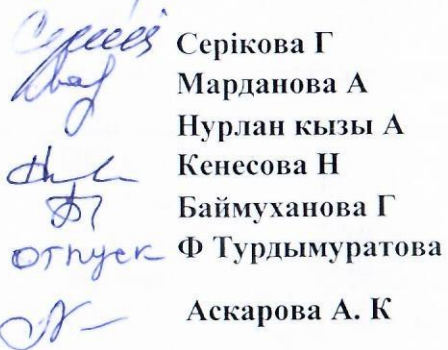 Серікова Г
Марданова А
Нурлан кызы А
Кенесова Н
Баймуханова Г
отпуск Ф Турдымуратова
Аскарова А. К